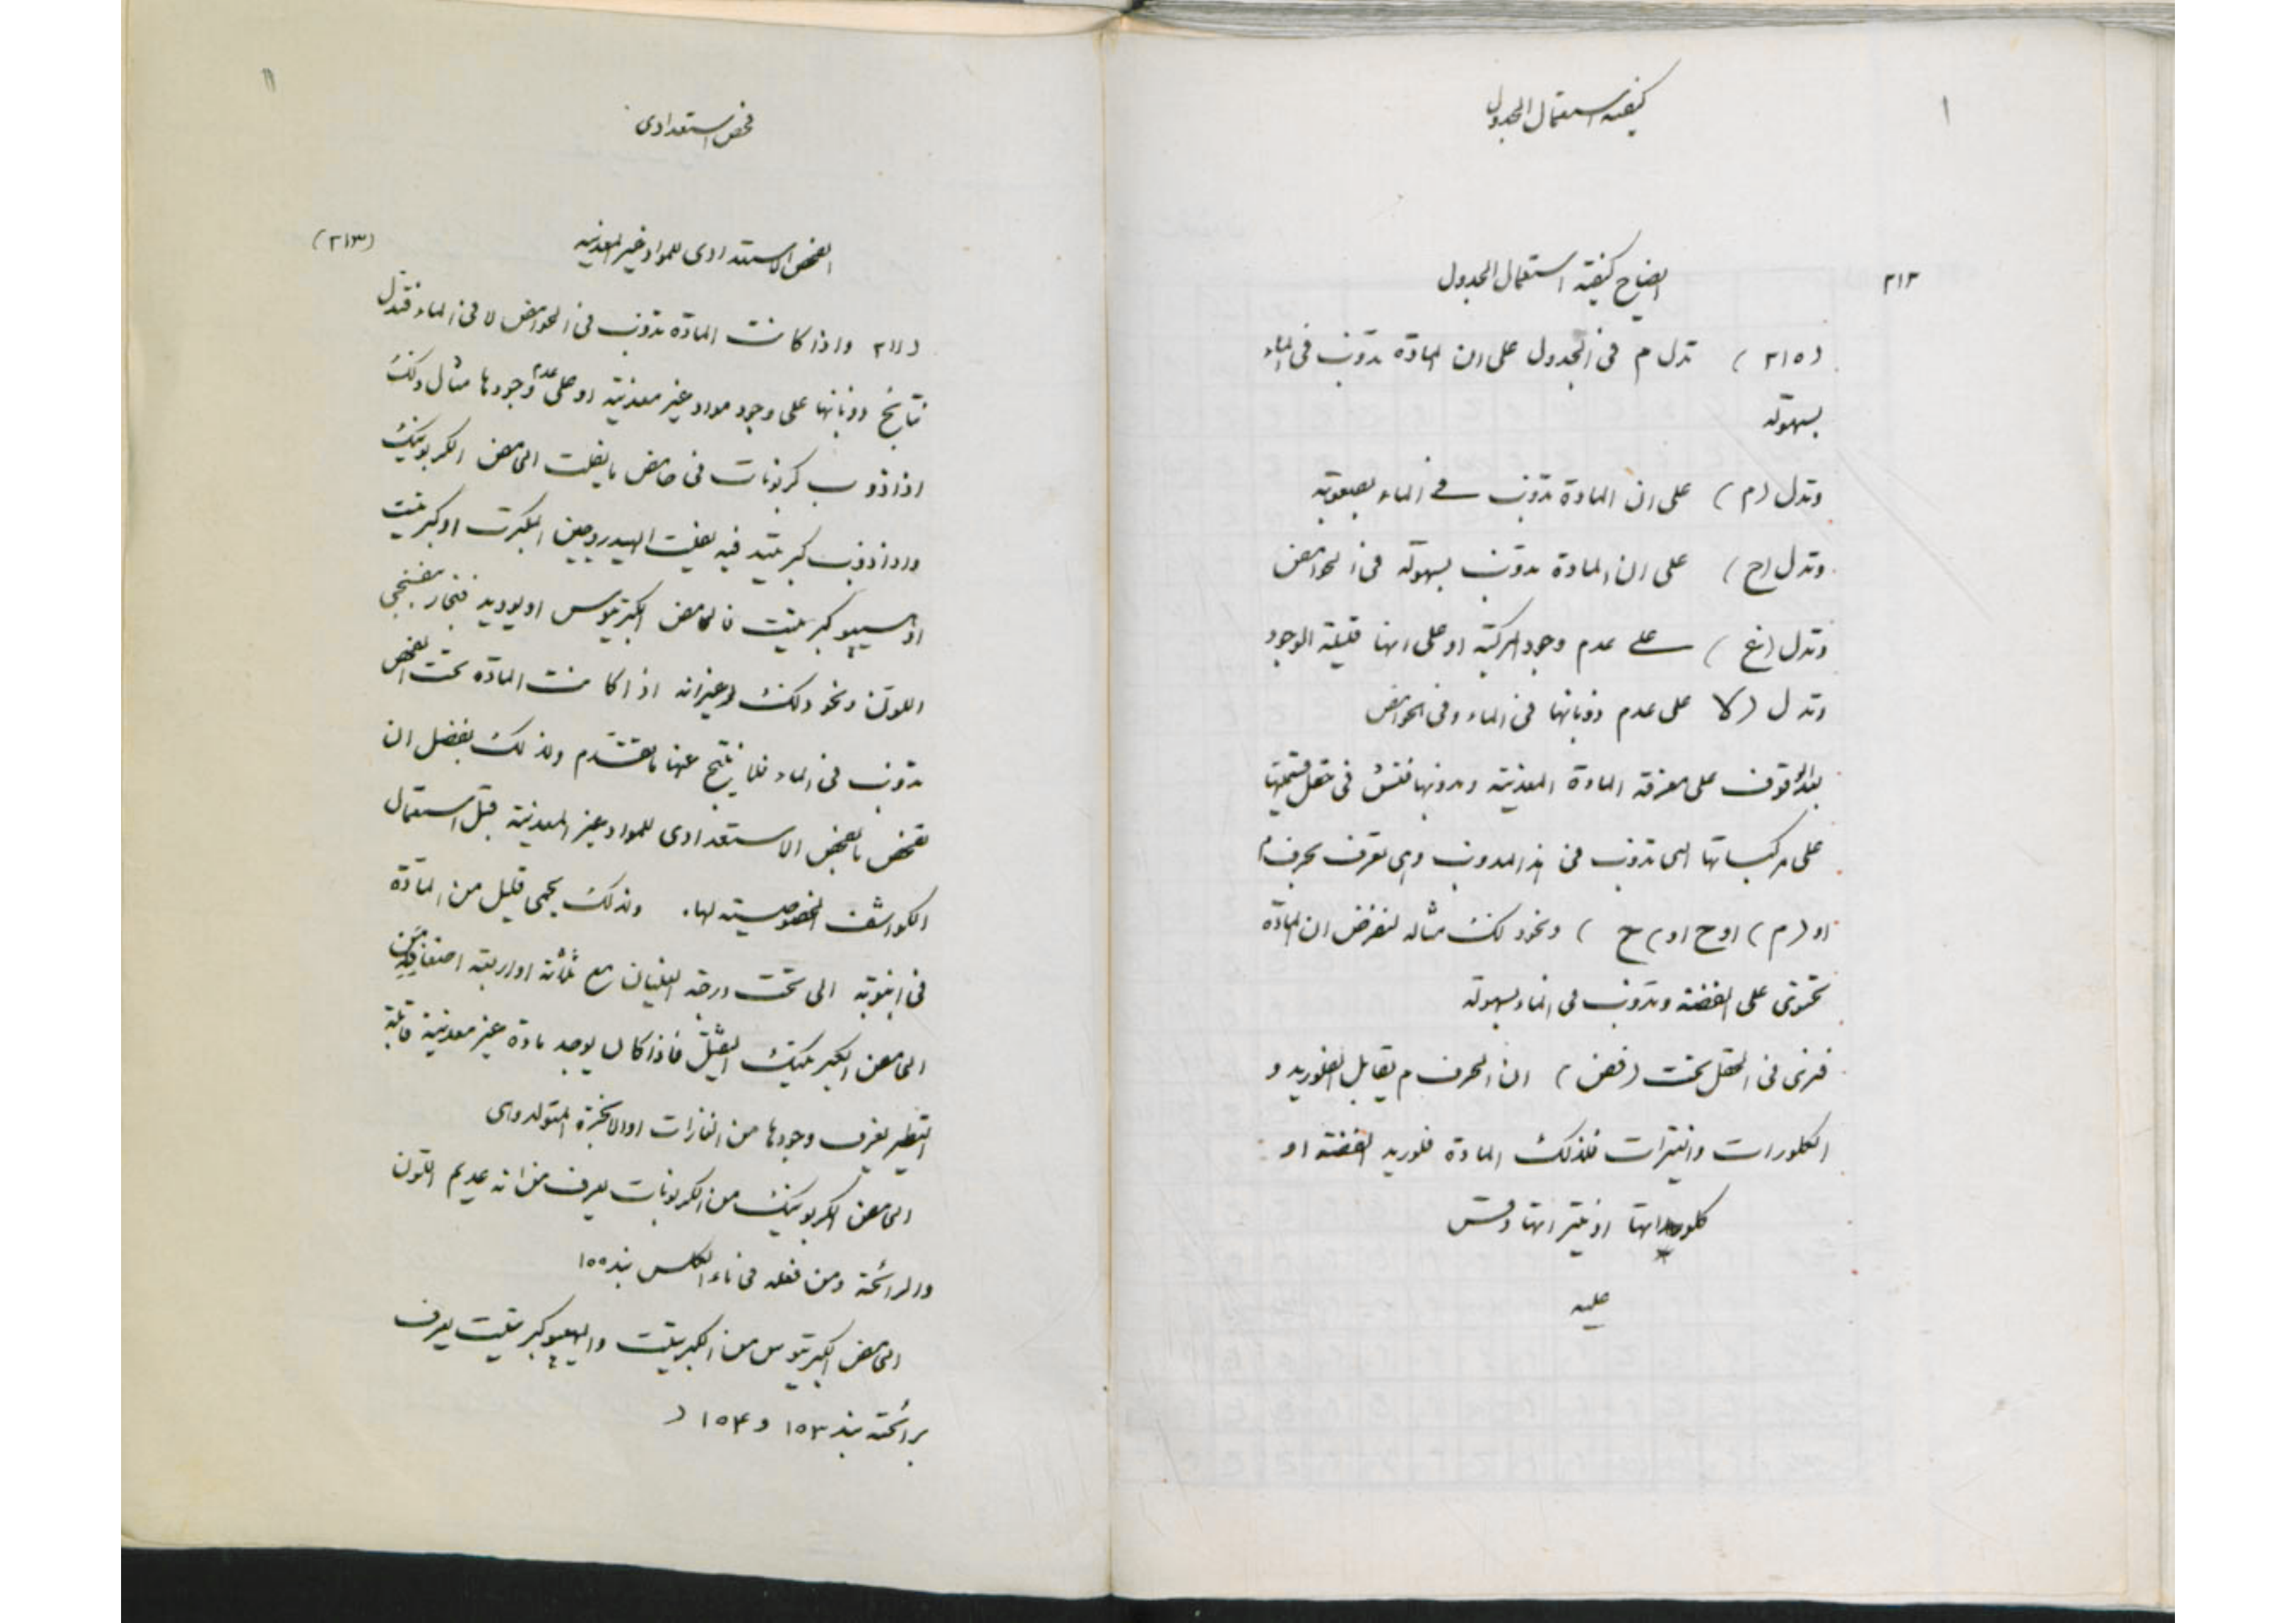 ١
كيفية استعمال الجدول
٢١٢
ايضاح كيفية استعمال الجدول
(٢١٥) تدل م فى الجدول على ان المادة تذوب فى الماء
بسهولة
وتدل (م) على ان المادة تذوب فى الماء بصعوبة
وتدل (ح) على ان المادة تذوب بسهولة فى الحوامض
وتدل (غ) على عدم وجود المركبة او على انها قليلة الوجود
وتدل (لا على عدم ذوبانها فى الماء وفى الحوامض
بعد الوقوف على معرفة المادة المعدنية فى حقل
على مركباتها التى تذوب فى وهى تعرف بحرف م
او (م) او ح او) ح ) ونحو ذلك مثاله لنفرض ان المادة
تحتوى على الفضة وتذوب فى الماء بسهولة
فنرى فى الحقل تحت (فض) ان الحرف م يقابل الفلوريد و
الكلورات والنيترات فلذلك المادة فلوريد الفضة او
كلوراتها او نيتراتها وقس
عليه
١١
فحص استعدادى
(٢١٣)
الفحص الاستعدادى للمواد غير المعدنية
(٢١١ واذا كانت المادة تذوب فى الحوامض لا فى الماء فتدل
نتايج ذوبانها على وجود مواد غير معدنية او على عدم وجودها مثال ذلك
اذا ذوب كربونات فى حامض ما يفلت الحامض الكربونيك
واذا ذوب كبريتيد فيه يفلت الهيدروجين المكبرت او كبريتيت
او هيپو كبريتيت فالحامض الكبريتوس او يوديد فبخار بنفسجى
اللون ونحو ذلك وغيرانه اذا كانت المادة تحت الفحص
تذوب فى الماء فلا ينتج عنها ما تقدم ولذلك يفضل ان
تفحص بالفحص الاستعدادى للمواد غير المعدنية قبل استعمال
الكواشف الخصوصية لها. وذلك يحمى قليل من المادة
فى انبوبة الى تحت درجة الغليان مع ثلثة او اربعة اضعافه من
الحامض الكبريتيك الثقيل فاذا كان يوجد مادة غير معدنية قابلة
التطير يعرف وجودها من الغازات او الابخرة المتولدة وهى
الحامض الكربونيك من الكربونات يعرف من انه عديم اللون
والرائحة ومن فعله فى ماء الكلس بند ١٥٥
الحامض الكبريتوس من الكبريتيت والهيپو كبريتيت يعرف
برائحته بند ١٥٣ و ١٥٤ (